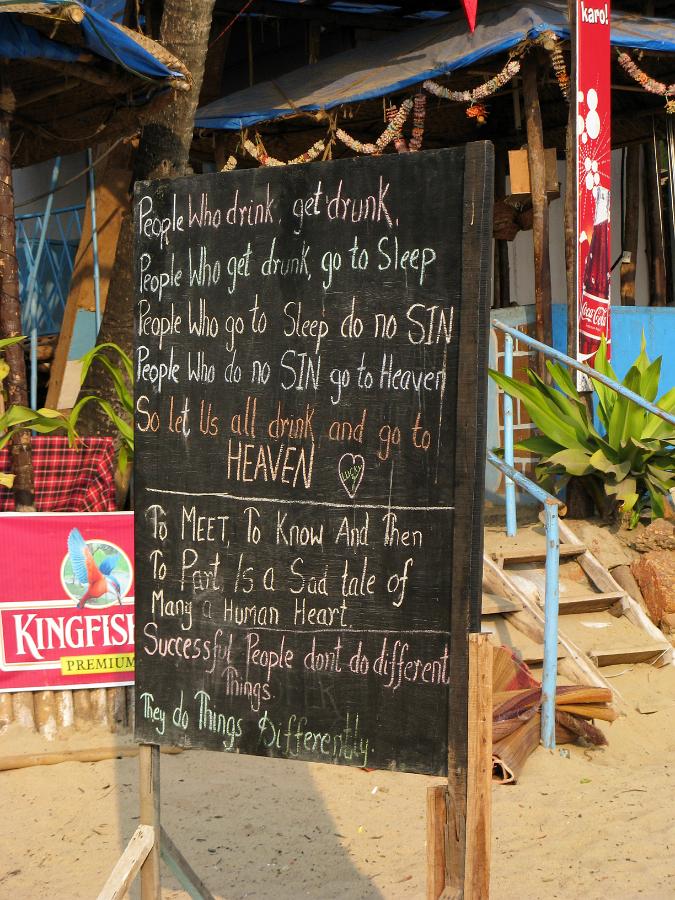 karo!
People Who drink, get drunk.
People Who get drunk, go to Sleep
People Who go to Sleep do no SIN
People Who do no SIN go to Heaven
So let Us all drink and go to
HEAVEN
LUCKY
To MEET, To Know And Then
To Part, Is a Sad tale of
Many a Human Heart.
Successful People dont do different
Things.
They do Things Differently.
KINGFISH
PREMIUM
Coca-Cola